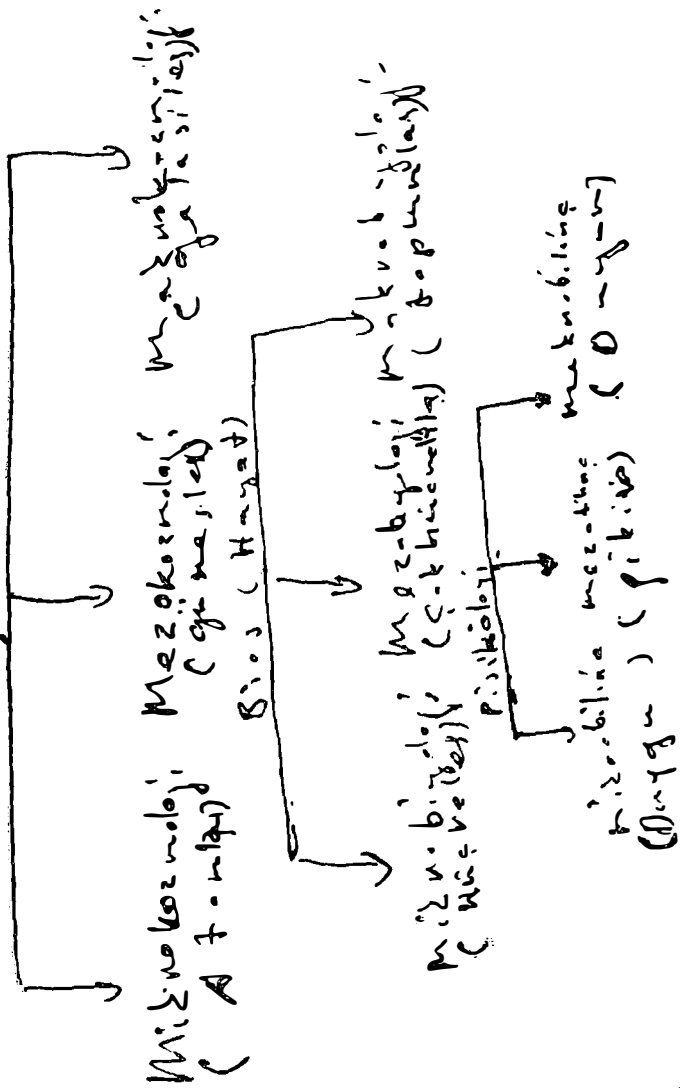 Mikrokozmoloji
(Atomlar)
Mezokozmoloji
(güneşler)
Makrokozmoloji
(galaksiler)
Bios (Hayat)
Mikrobiyoloji
(Hücreler)
Mezobiyoloji
(Çok hücreliler)
makrobiyoloji
(toplumlar)
Pisikoloji
mikrobilinç
(Duygu)
mezobilinç
(fikir)
makrobilinç